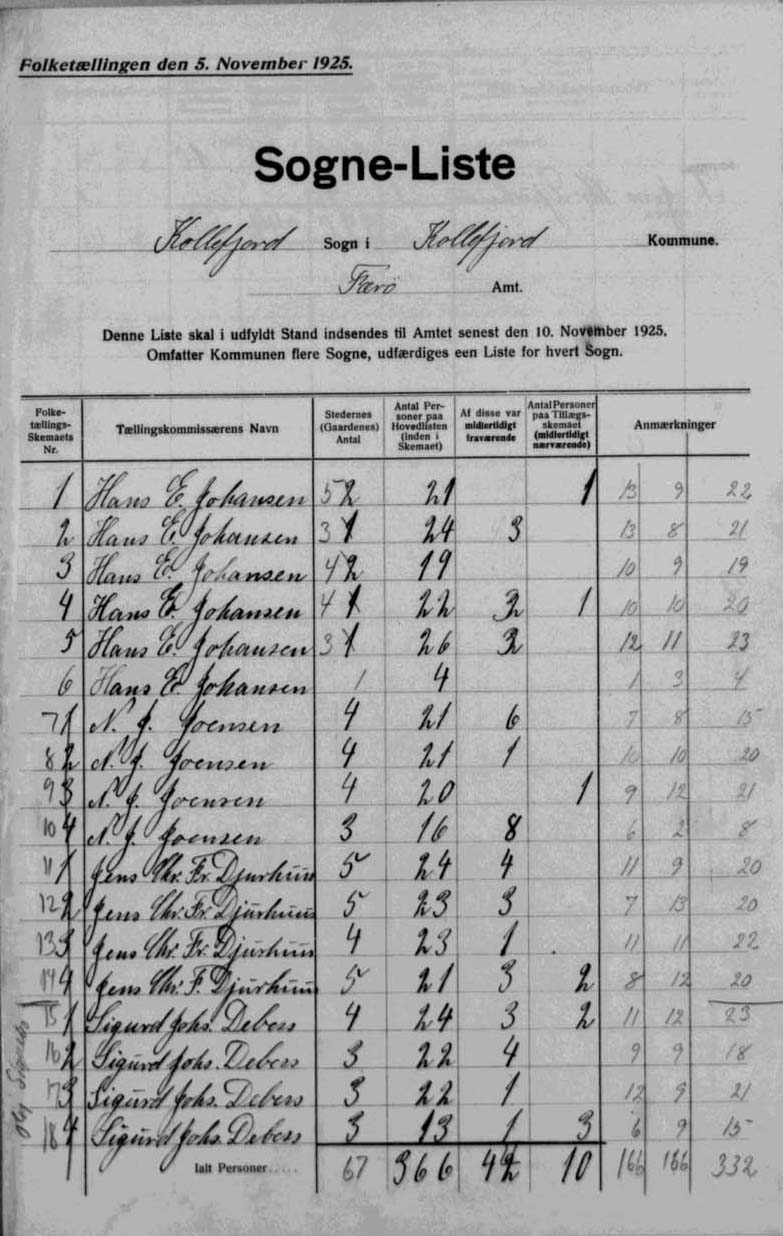 Folketællingen den 5. November 1925.
Sogne-Liste
Kollefjord Sogn i Kollefjord Kommune.
Færö Amt.
Denne Liste skal i udfyldt Stand indsendes til Amtet senest den 10. November 1925.
Omfatter Kommunen flere Sogne, udfærdiges een Liste for hvert Sogn.
Folke-tællings-Skemaets Nr. Tællingskommissærens Navn Stedernes (Gaardenes) Antal Antal Personer paa Hovedlisten (inden i Skemaet) Af disse var midlertidigt fraværende Antal Personer paa Tillægs-skemaet (midlertidigt nærværende) Anmærkninger
1 Hans E. Johansen 5 2 21 1 13 9 22
2 Hans E. Johansen 3 1 24 3 13 8 21
3 Hans E. Johansen 4 2 19 10 9 19
4 Hans E. Johansen 4 1 22 1 10 10 20
5 Hans E. Johansen 3 1 26 12 11 23
6 Hans E. Johansen 1 4 1 3 4
7 1 N. J. Joensen 4 21 6 7 8 15
8 2 N. J. Joensen 4 21 1 10 10 20
9 3 N. J. Joensen 4 20 1 9 12 21
10 4 N. J. Joensen 3 16 8 6 2 8
11 1 Jens Chr. Fr. Djurhuus 5 24 4 11 9 20
12 2 Jens Chr. Fr. Djurhuus 5 23 3 7 13 20
13 3 Jens Chr. Fr. Djurhuus 4 23 1 11 11 22
14 4 Jens Chr. F. Djurhuus 5 21 3 2 8 12 20
15 1 Sigurd Johs. Debess 4 24 3 2 11 12 23
16 2 Sigurd Johs. Debess 3 22 4 9 9 18
17 3 Sigurd Johs. Debess 3 22 1 12 9 21
18 4 Sigurd Johs. Debess 3 13 1 3 6 9 15
Ialt Personer..... 67 366 42 10 166 166 332